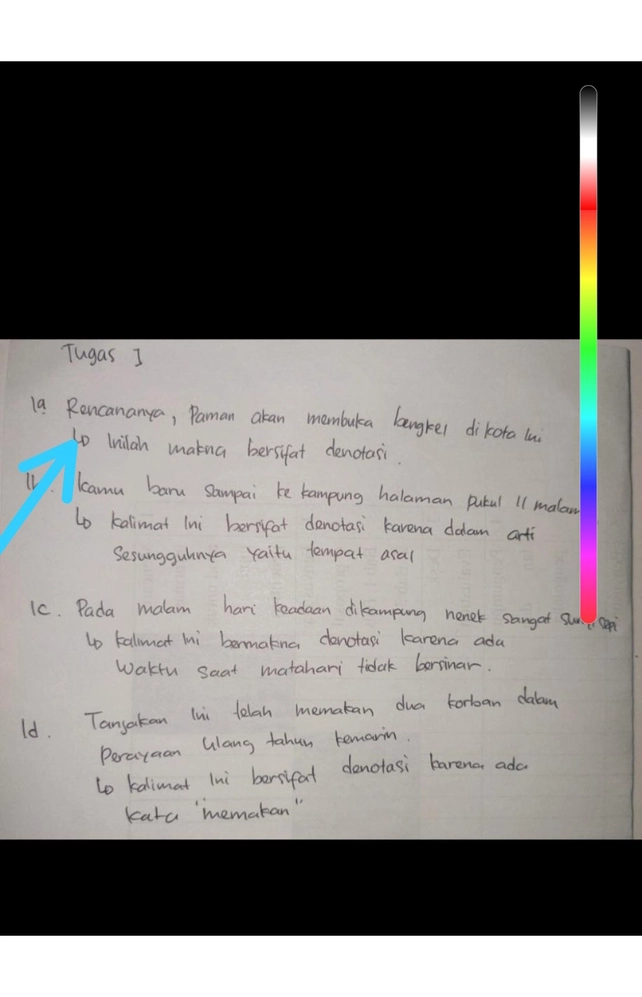 Tugas I
1a. Rencananya, Paman akan membuka bengkel di kota Ini
↳ Inilah makna bersifat denotasi.
kamu baru sampai ke kampung halaman pukul 11 malam
↳ kalimat Ini bersifat denotasi karena dalam arti
Sesungguhnya yaitu tempat asal
1c. Pada malam hari keadaan dikampung nenek sangat
↳ kalimat Ini bermakna denotasi karena ada
Waktu saat matahari tidak bersinar.
1d. Tanjakan Ini telah memakan dua korban dalam
Perayaan Ulang tahun kemarin.
↳ kalimat Ini bersifat denotasi karena ada
kata "memakan"